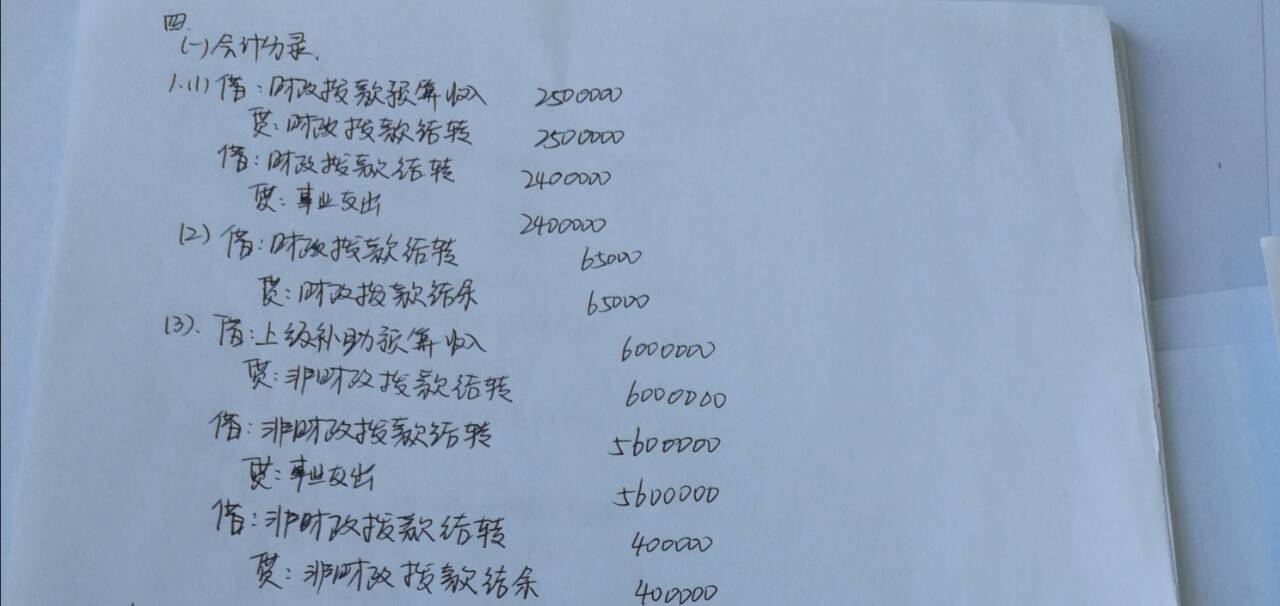 四.
(一)会计分录.
1.(1) 借:财政拨款预算收入 2500000
贷:财政拨款结转 2500000
借:财政拨款结转 2400000
贷:事业支出 2400000
(2) 借:财政拨款结转 65000
贷:财政拨款结余 65000
(3). 借:上级补助预算收入 6000000
贷:非财政拨款结转 6000000
借:非财政拨款结转 5600000
贷:事业支出 5600000
借:非财政拨款结转 400000
贷:非财政拨款结余 400000